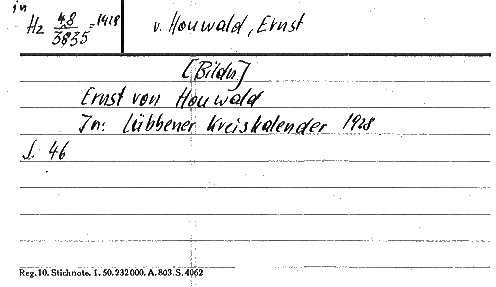 in
Hz 48/3835 = 1928 v. Houwald, Ernst
[Bildn]
Ernst von Houwald
In: Lübbener Kreiskalender 1928
S. 46
Reg. 10. Stichnote. 1. 50. 232000. A. 803. S. 4062